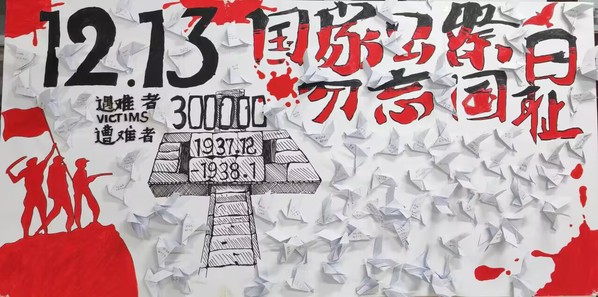 12.13
国家公祭日
勿忘国耻
遇难者
VICTIMS
遭难者
300000
1937.12
-1938.1